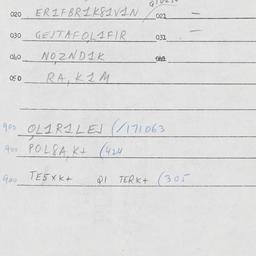 020 ER1FBR1K81V1N 021 —
030 GEJTAFOL1FIR 031 —
040 NOZND1K
050 RA, K1M
900 OL1R1LEJ (/171063
900 POL8A, K+ (424
900 TE5XK+ Q1 TERK+ (305